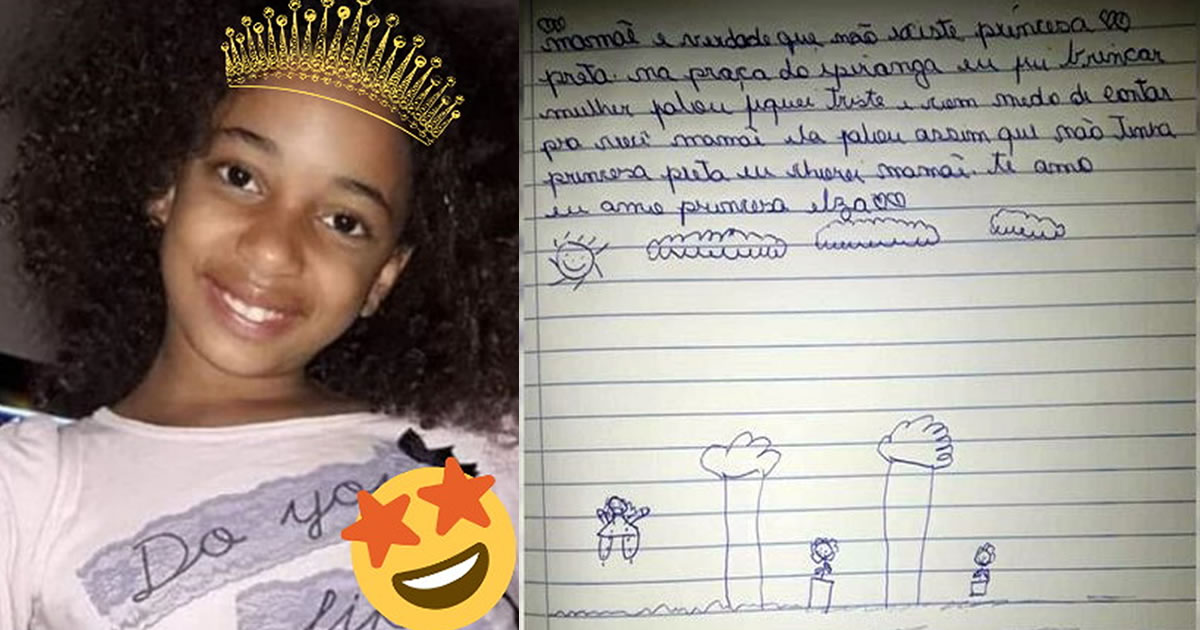 Do you
li
mamãe e verdade que não existe princesa
preta. na praça do ipiranga eu fui brincar
mulher falou fiquei triste e com medo de contar
pra você mamãe ela falou assim que não Tinha
princesa preta eu chorei mamãe. te amo
eu amo princesa elza